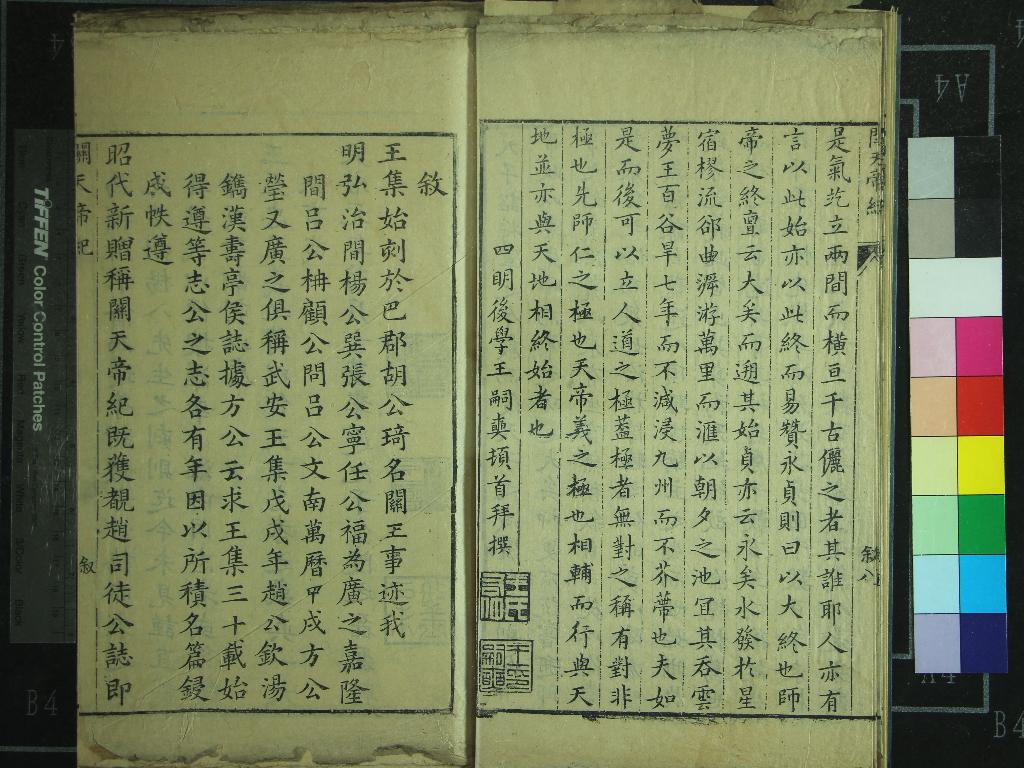 關天帝紀
敘八
是氣訖立兩間而橫亘千古儷之者其誰耶人亦有
言以此始亦以此終而易贊永貞則曰以大終也師
帝之終亶云大矣而遡其始貞亦云永矣水發於星
宿樛流郤曲漰游萬里而滙以朝夕之池宜其吞雲
夢王百谷旱七年而不減浸九州而不芥蔕也夫如
是而後可以立人道之極葢極者無對之稱有對非
極也先師仁之極也天帝義之極也相輔而行與天
地並亦與天地相終始者也
四明後學王嗣奭頓首拜撰
敘
王集始刻於巴郡胡公琦名關王事迹我
明弘治間楊公巽張公寧任公福為廣之嘉隆
間呂公柟顧公問呂公文南萬曆甲戌方公
瑩又廣之俱稱武安王集戊戌年趙公欽湯
鐫漢壽亭侯誌據方公云求王集三十載始
得遵等志公之志各有年因以所積名篇鋟
成帙遵
昭代新贈稱關天帝紀既獲覩趙司徒公誌即
關天帝紀
敘
TIFFEN Color Control Patches
A4
B4
B4